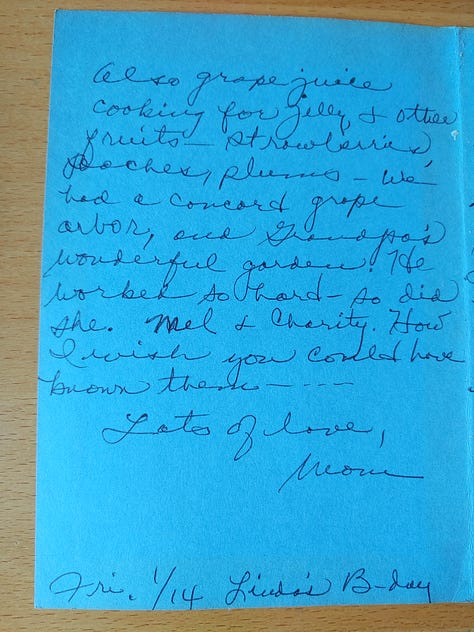 Also grape juice
cooking for jelly & other
fruits — strawberries,
peaches, plums — we
had a concord grape
arbor, and Grandpa's
wonderful garden! He
worked so hard — so did
she. Mel & Charity. How
I wish you could have
known them — - - -
Lots of love,
Mom
Fri. 1/14 Linda's B-day